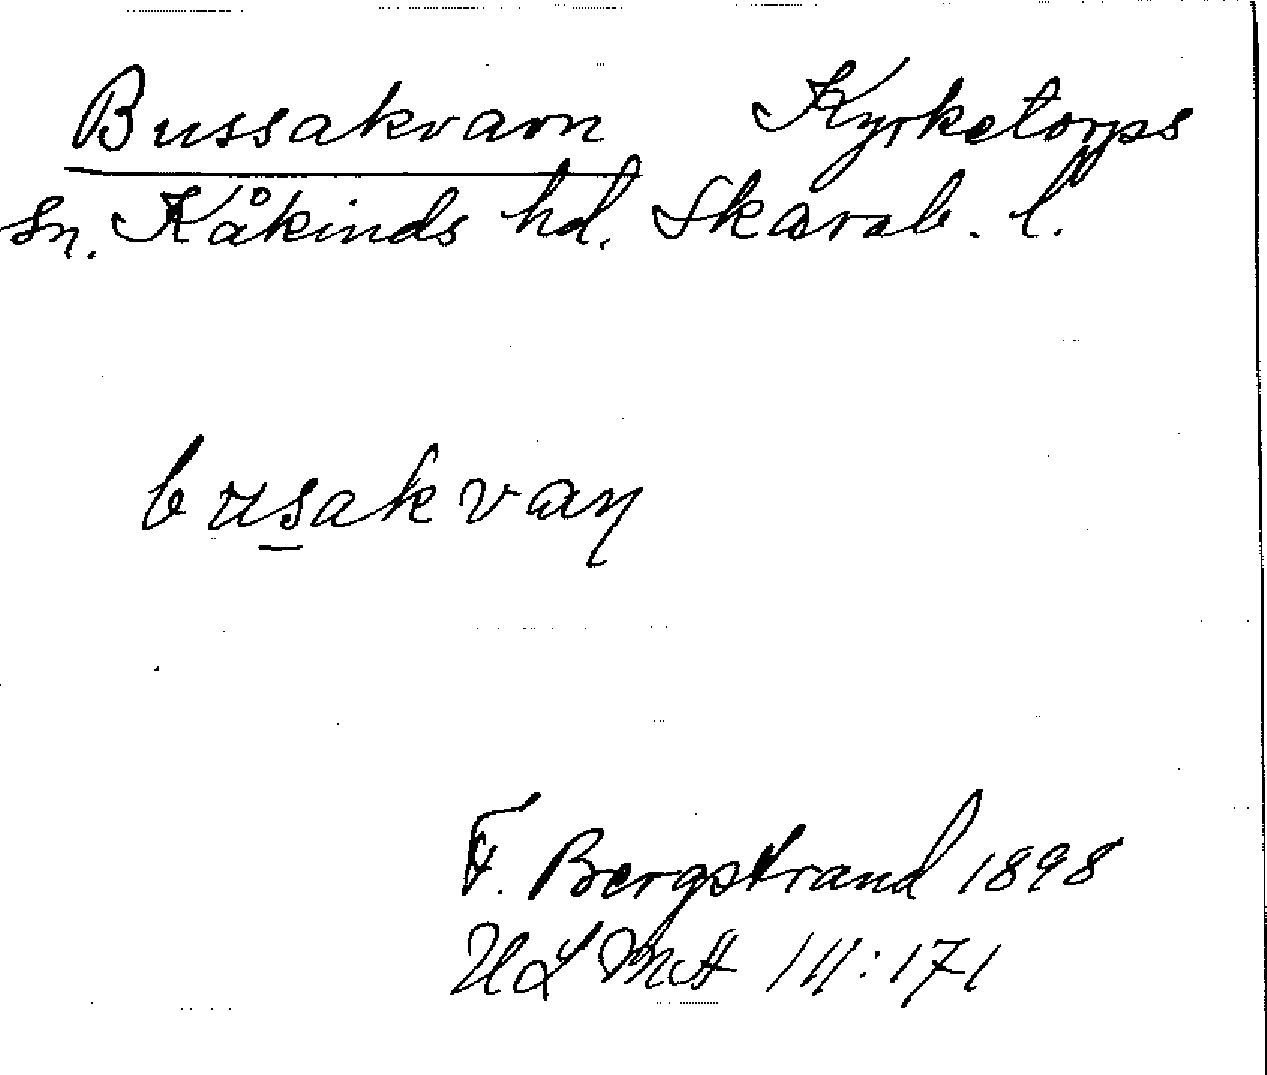 Bussakvarn Kyrketorps
sn. Kåkinds hd. Skarab. l.
busakvaṇ
F. Bergstrand 1898
ULMA 111:171